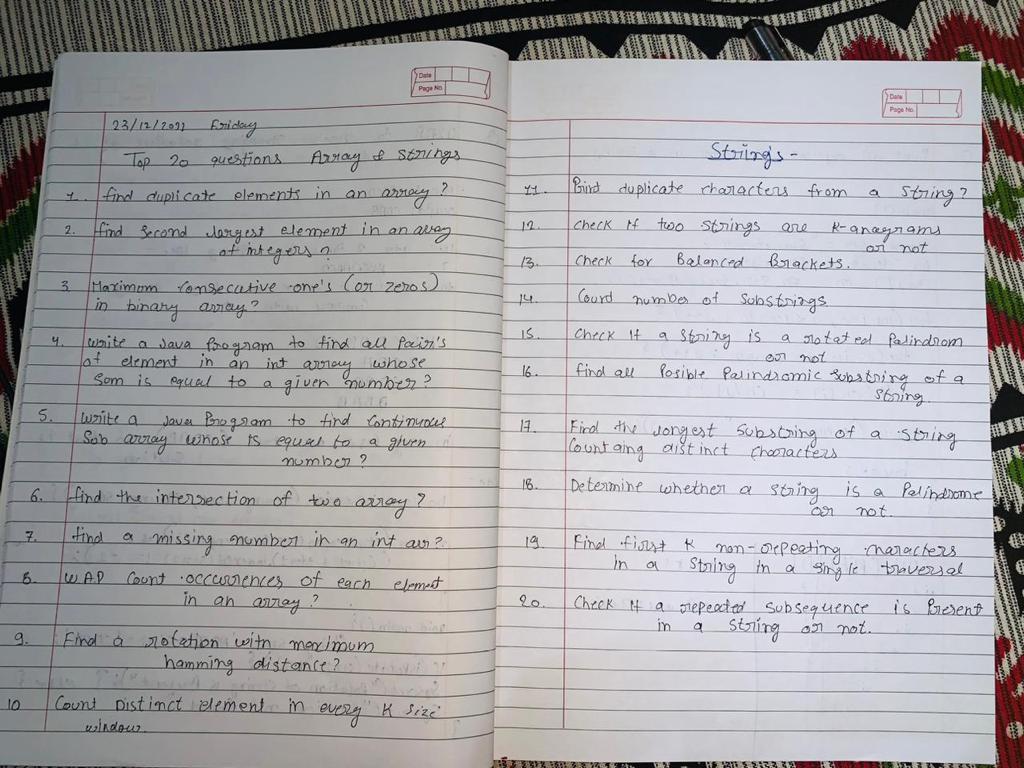 Date
Page No.
23/12/2022 Friday
Top 20 questions Array & strings
1. find duplicate elements in an array?
2. find second largest element in an array
of integers?
3. Maximum consecutive one's (or zeros)
in binary array?
4. Write a Java Program to find all Pair's
of element in an int array whose
Som is equal to a given number?
5. Write a Java Program to find continuous
Sub array whose is equal to a given
number?
6. find the intersection of two array?
7. find a missing number in an int arr?
8. W.A.P Count occurrences of each element
in an array?
9. Find a rotation with maximum
hamming distance?
10 Count Distinct element in every K size
window.
Date
Page No.
Strings-
11. Bind duplicate characters from a string?
12. Check if two strings are K-anagrams
or not
13. Check for Balanced Brackets.
14. Count number of substrings
15. Check if a string is a rotated Palindrom
or not
16. find all Posible Palindromic substring of a
string.
17. Find the longest substring of a string
Countaing distinct characters
18. Determine whether a string is a Palindrome
or not.
19. Find first K non-repeating characters
in a string in a single traversal
20. Check if a repeated subsequence is Present
in a string or not.